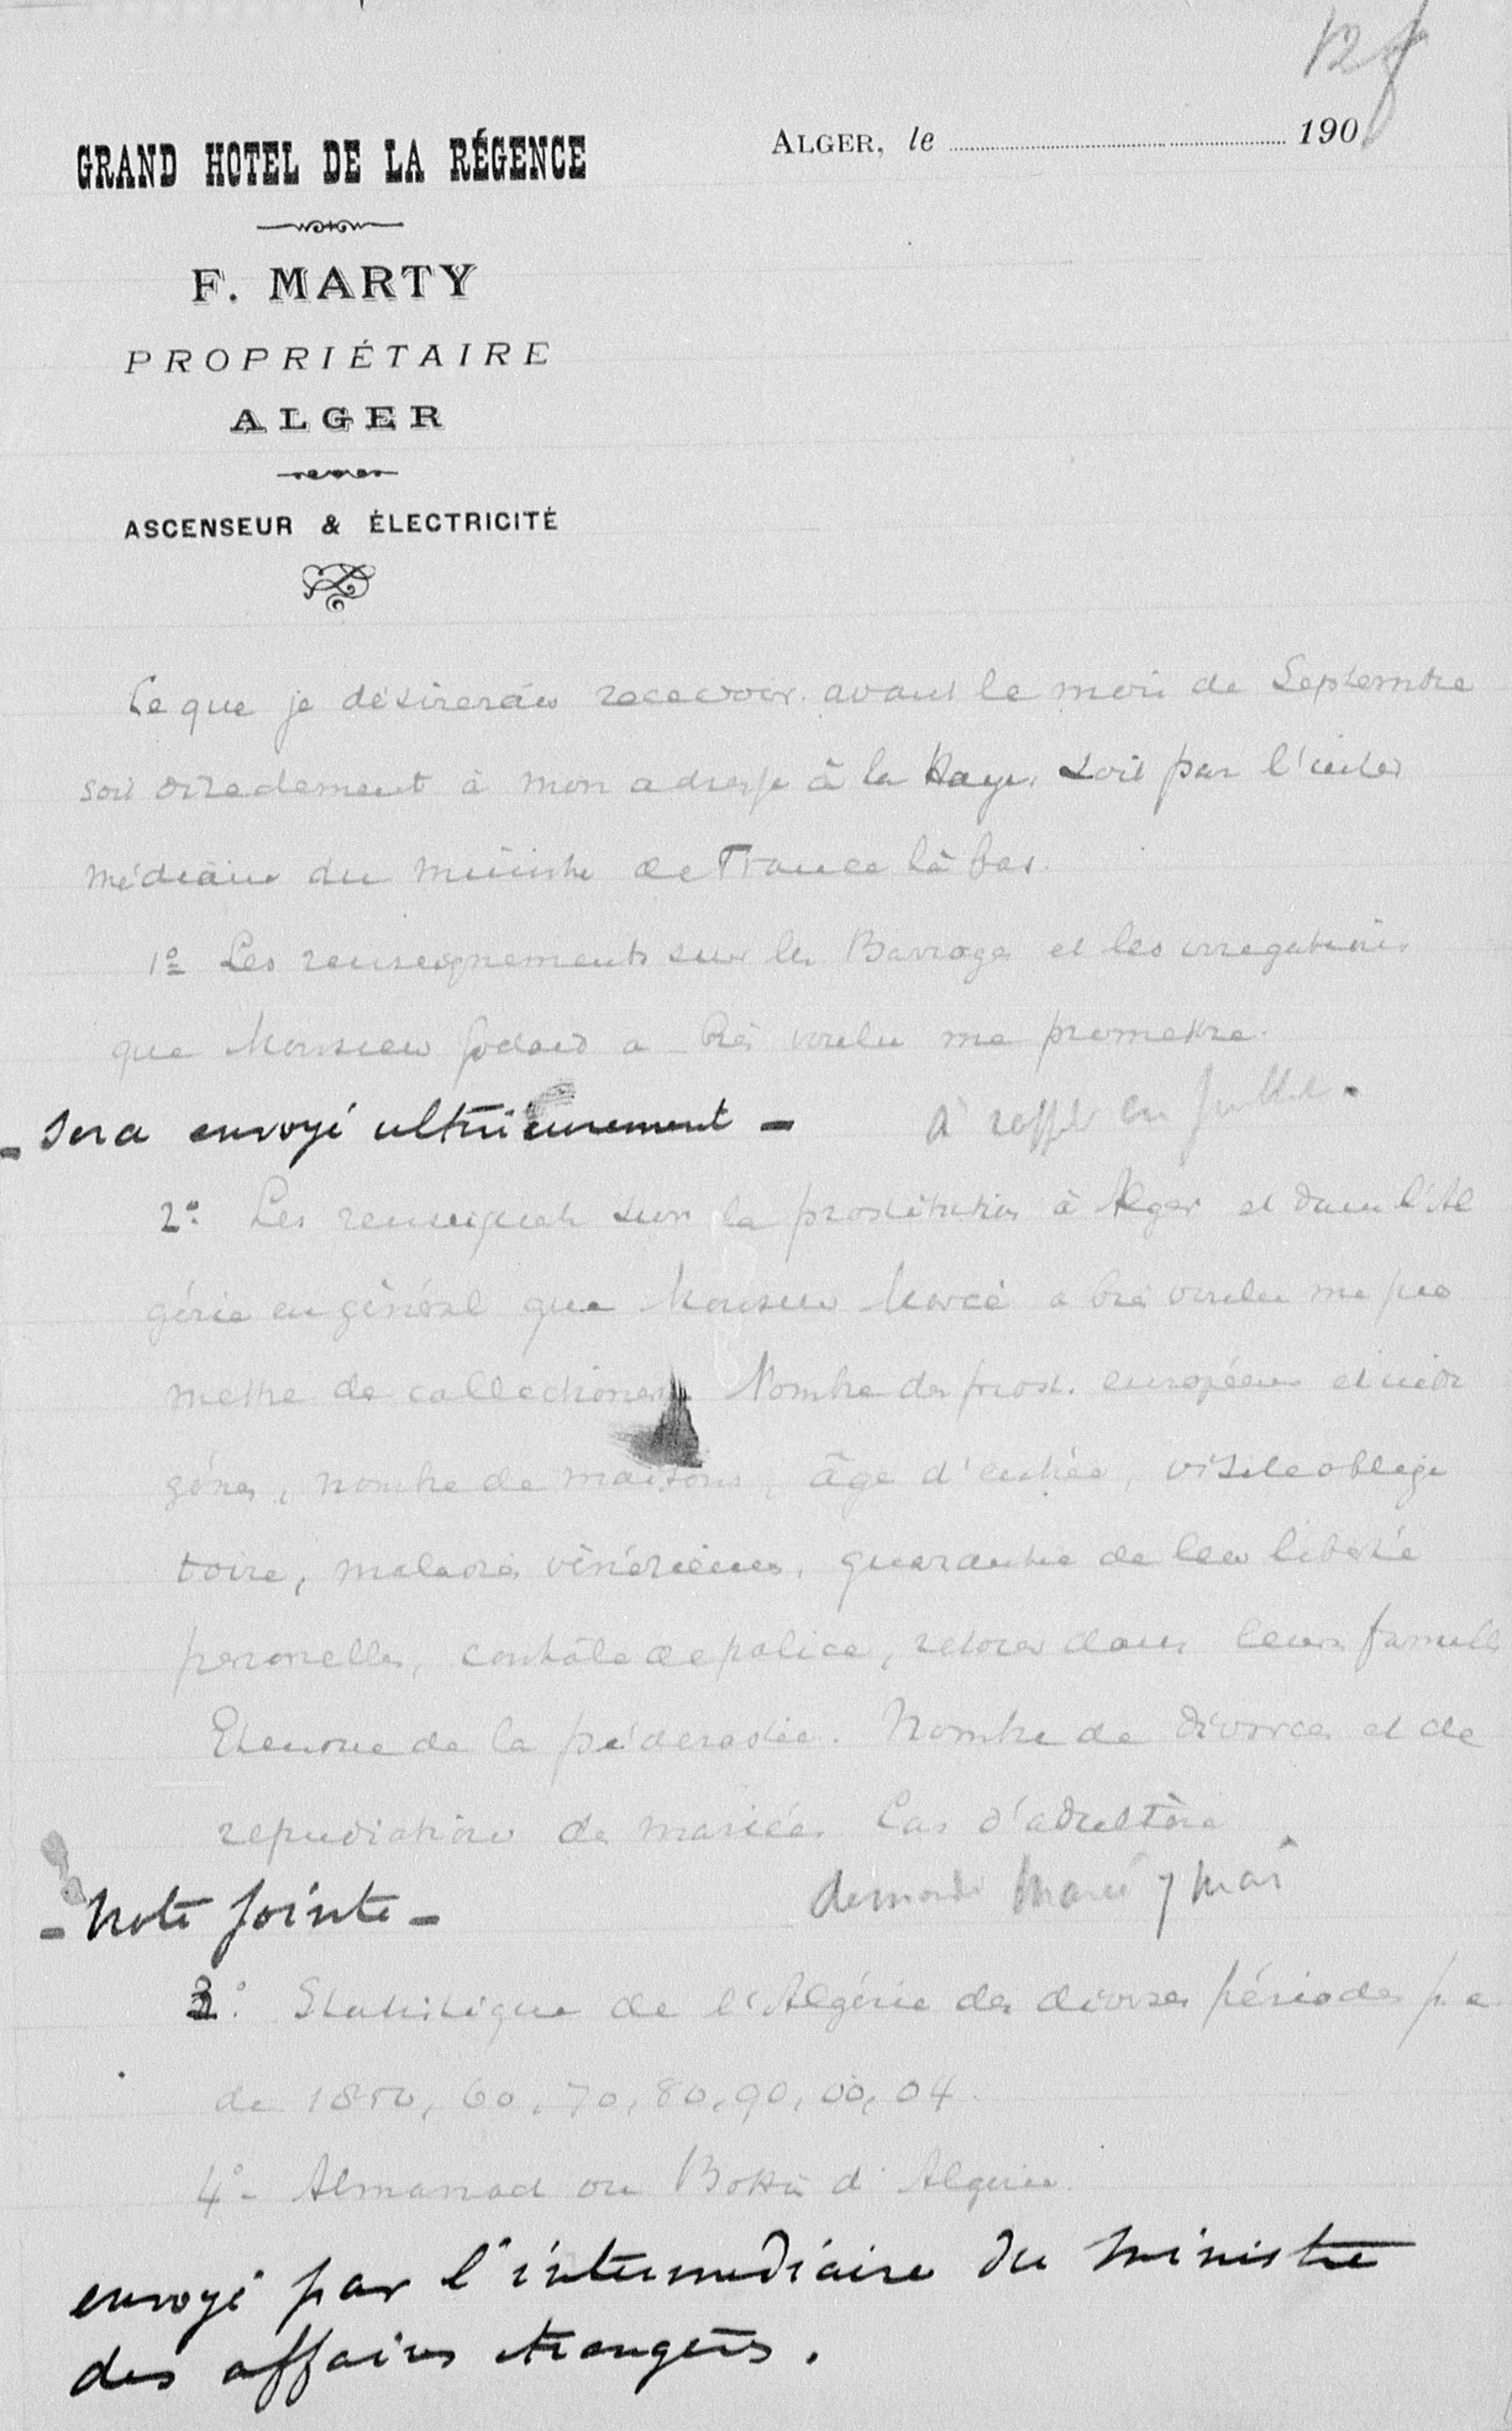 12f
GRAND HOTEL DE LA RÉGENCE
ALGER, le 190
F. MARTY
PROPRIÉTAIRE
ALGER
ASCENSEUR & ÉLECTRICITÉ
Ce que je désirerais recevoir avant le mois de Septembre
soit directement à mon adresse à la Haye, soit par l'inter
médiaire du ministre de France là bas.
1º Les renseignements sur les Barrages et les irrigations
que Monsieur Godard a bien voulu me promettre.
- Sera envoyé ultérieurement -
à en juillet.
2º Les renseignements sur la prostitution à Alger et dans l'Al
gérie en général que Monsieur a bien voulu me pro
mettre de collectioner. Nombre des prost. européenes et indi
gènes, nombre de maisons, âge d'entrée, visite obliga
toire, maladies vénériènes, guarantie de leur liberté
personelles, contrôle de police, retour dans leurs familles
Etendue de la péderastie. Nombre de divorces et de
repudiations de mariées. Cas d'adultère
demandé 7 Mai
- Note jointe -
3º Statistique de l'Algérie des diverses périodes p. e
de 1850, 60, 70, 80, 90, 00, 04.
4º - Almanach ou Bottin d'Algérie.
envoyé par l'intermédiaire du ministre
des affaires étrangères.